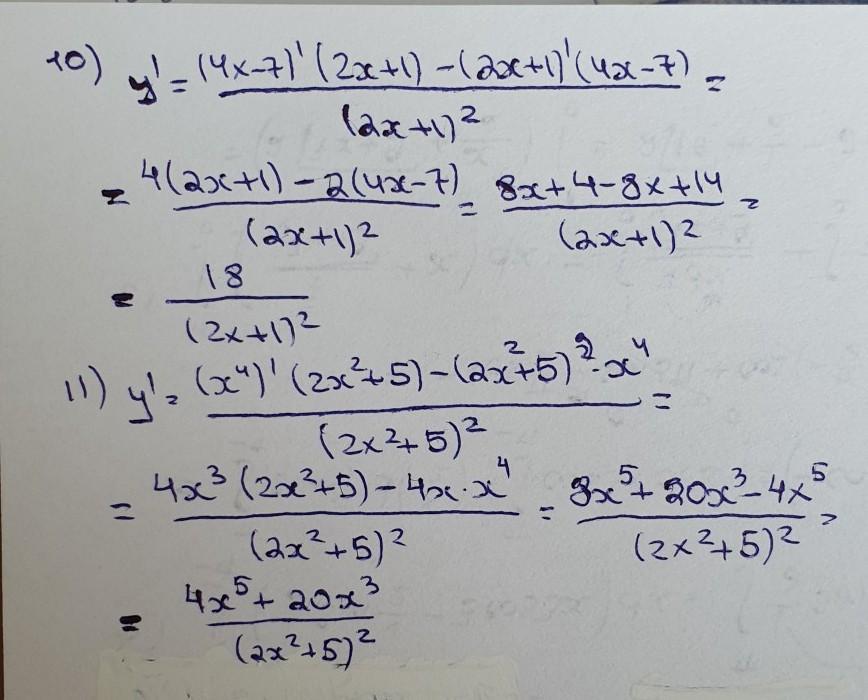 10) y' = (4x-7)'(2x+1) - (2x+1)'(4x-7) / (2x+1)² =
= 4(2x+1) - 2(4x-7) / (2x+1)² = 8x+4-8x+14 / (2x+1)² =
= 18 / (2x+1)²
11) y' = (x⁴)'(2x²+5) - (2x²+5)²·x⁴ / (2x²+5)² =
= 4x³(2x²+5) - 4x·x⁴ / (2x²+5)² = 8x⁵+20x³-4x⁵ / (2x²+5)² =
= 4x⁵+20x³ / (2x²+5)²